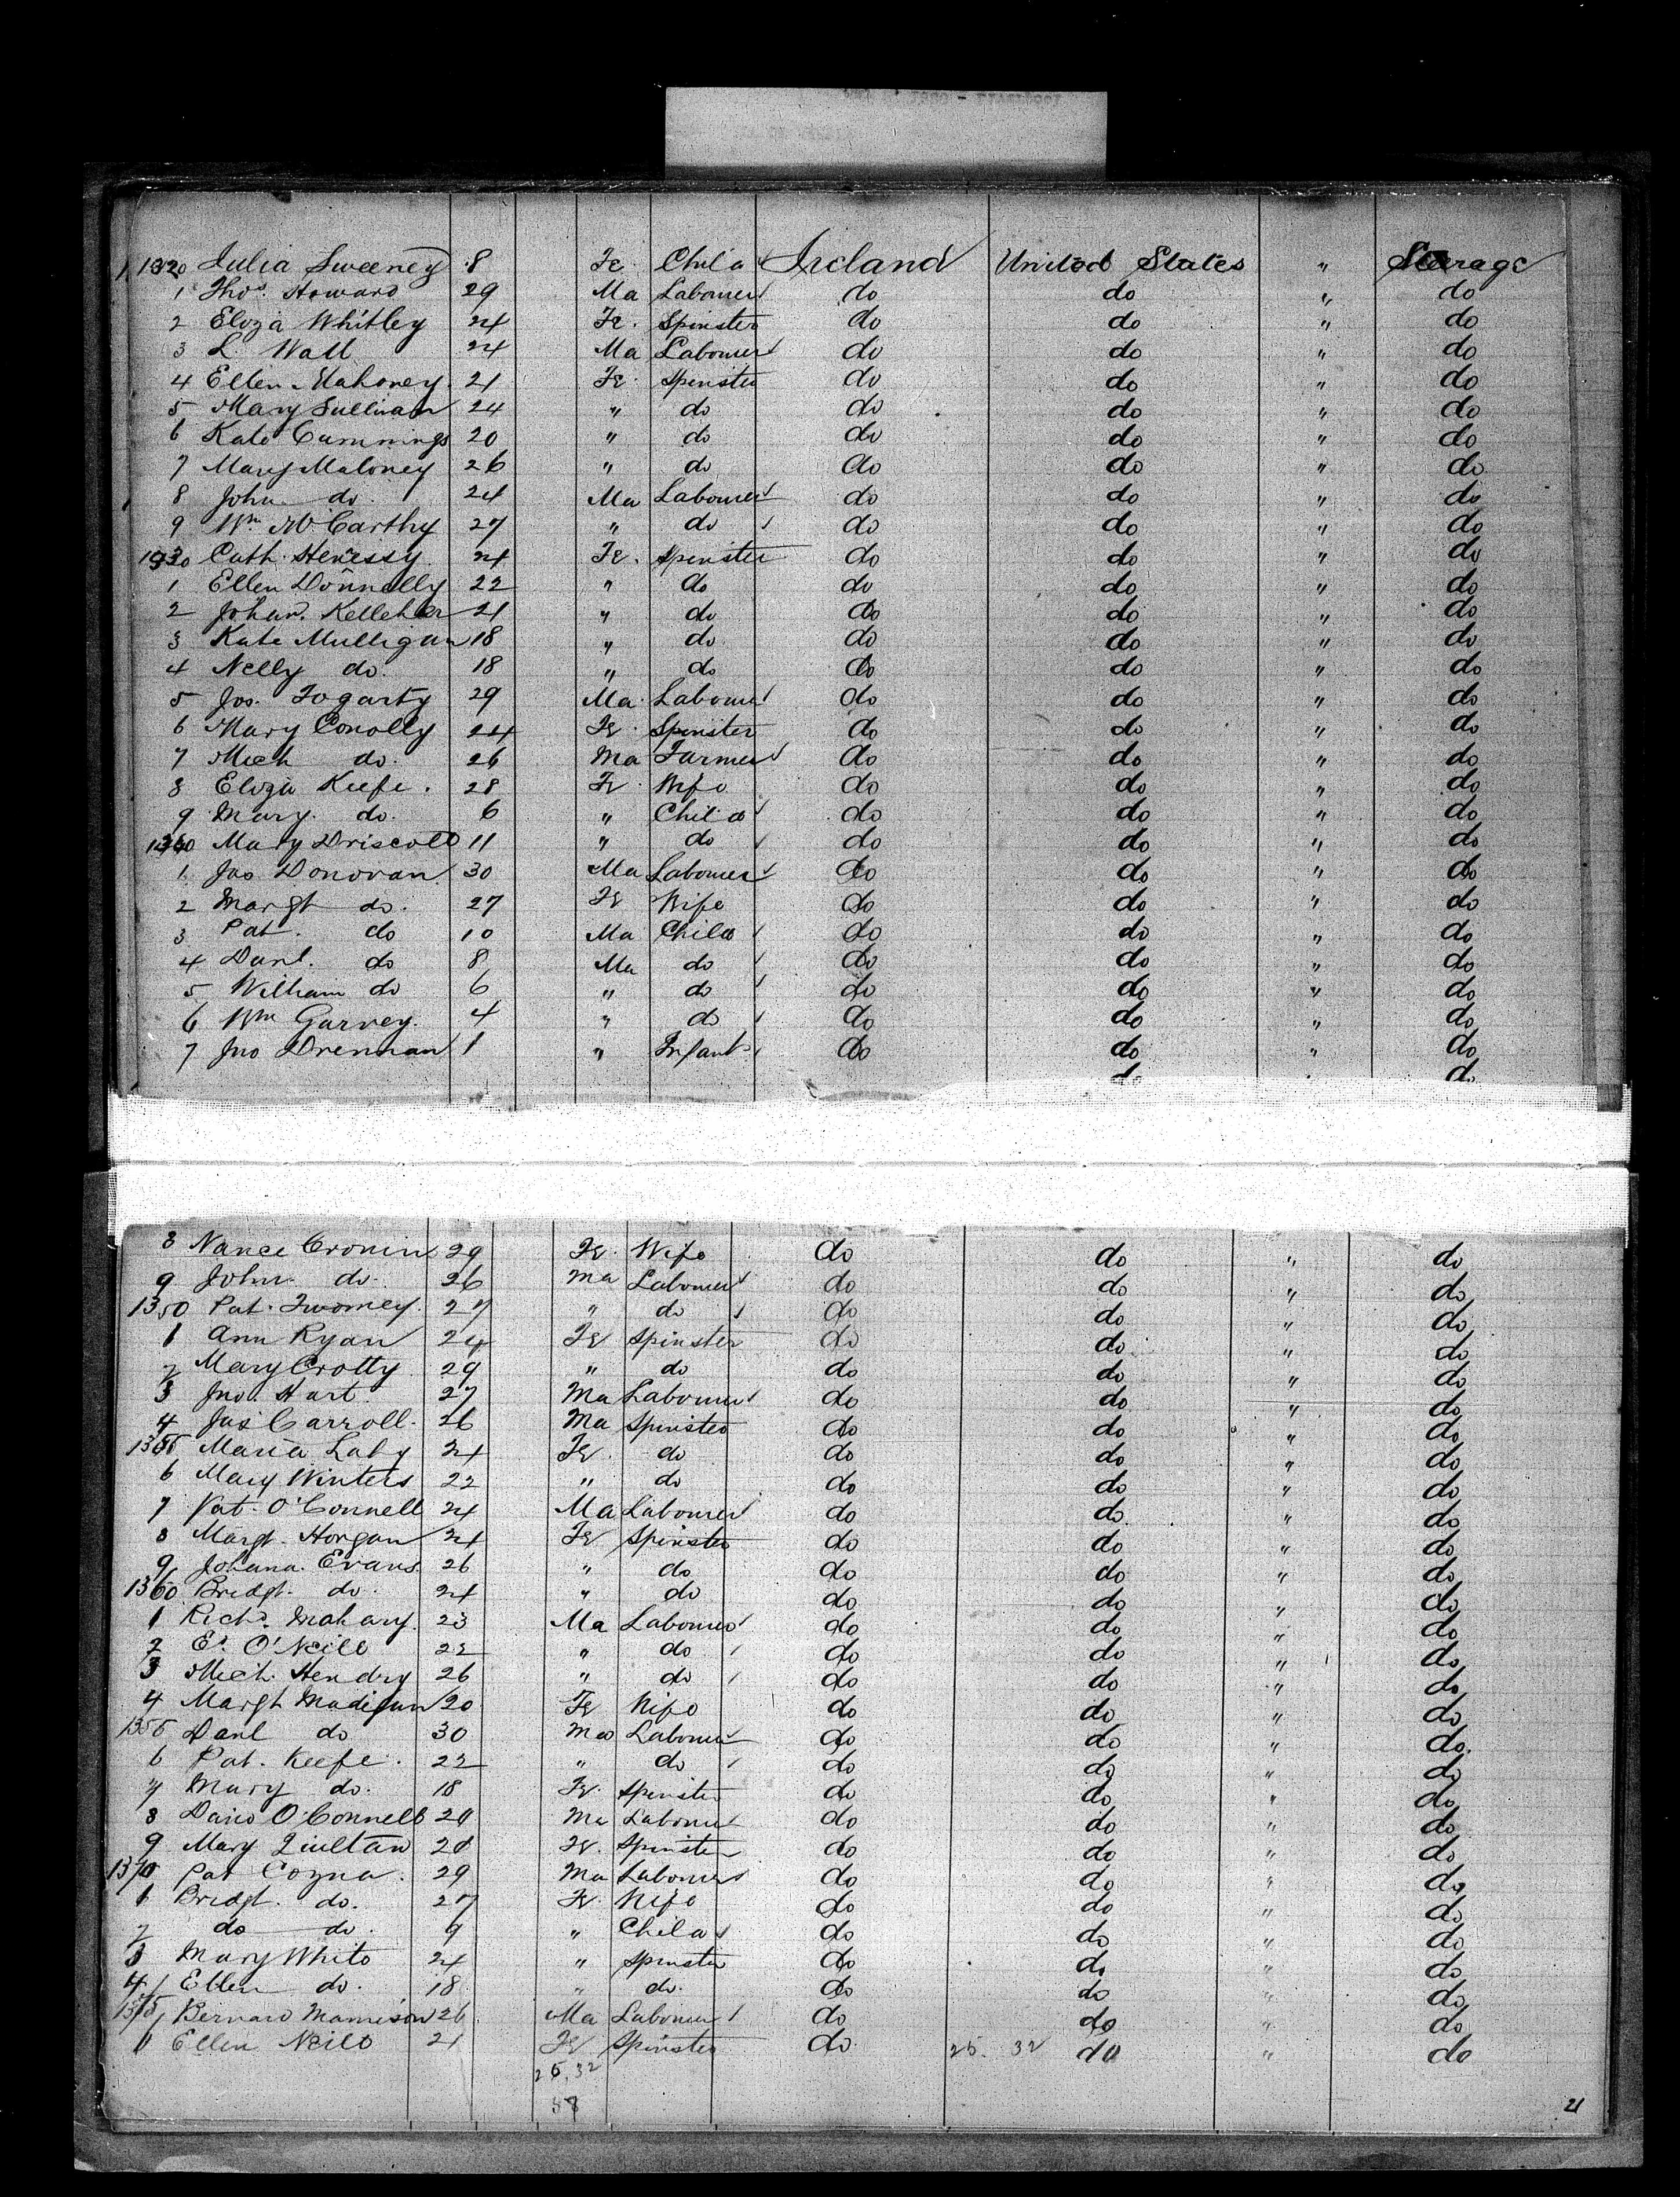 1320 Julia Sweeney 8 Fe. Child Ireland United States " Steerage
1 Thos. Howard 29 Ma Labourer do do " do
2 Eliza Whitley 24 Fe. Spinster do do " do
3 L. Wall 24 Ma Labourer do do " do
4 Ellen Mahoney 21 Fe. Spinster do do " do
5 Mary Sullivan 24 " do do do " do
6 Kate Cummings 20 " do do do " do
7 Mary Maloney 26 " do do do " do
8 John do 24 Ma Labourer do do " do
9 Wm McCarthy 27 " do do do " do
1330 Cath. Henessy 24 Fe. Spinster do do " do
1 Ellen Donnelly 22 " do do do " do
2 Johan. Kelleher 21 " do do do " do
3 Kate Mulligan 18 " do do do " do
4 Nelly do. 18 " do do do " do
5 Jos. Fogarty 29 Ma. Labourer do do " do
6 Mary Conolly 24 Fe. Spinster do do " do
7 Mich do. 26 Ma Farmer do do " do
8 Eliza Keefe. 28 Fe. Wife do do " do
9 Mary. do. 6 " Child do do " do
1340 Mary Driscoll 11 " do do do " do
1 Jas Donovan 30 Ma Labourer do do " do
2 Margt do. 27 Fe Wife do do " do
3 Pat. do 10 Ma Child do do " do
4 Danl. do 8 Ma do do do " do
5 William do 6 " do do do " do
6 Wm Garvey. 4 " do do do " do
7 Jno Drennan 1 " Infant do do " do
do do
8 Nance Cronin 29 Fe. Wife do do " do
9 John do. 26 Ma Labourer do do " do
1350 Pat. Twomey. 27 " do do do " do
1 Ann Ryan 24 Fe Spinster do do " do
2 Mary Crotty 29 " do do do " do
3 Jno. Hart 27 Ma Labourer do do " do
4 Jas Carroll. 26 Ma Spinster do do " do
1355 Maria Laby 24 Fe. do do do " do
6 Mary Winters 22 " do do do " do
7 Pat. O'Connell 24 Ma Labourer do do " do
8 Margt. Horgan 24 Fe Spinster do do " do
9 Johana. Evans 26 " do do do " do
1360 Bridgt. do. 24 " do do do " do
1 Richd. Mahany. 23 Ma Labourer do do " do
2 Ed. O'Neill 22 " do do do " do
3 Mich. Hendry 26 " do do do " do
4 Margt Madigan 20 Fe Wife do do " do
Danl do 30 Ma Labourer do do " do
6 Pat. Keefe. 22 " do do do " do
7 Mary do. 18 Fe. Spinster do do " do
8 David O'Connell Ma Labourer do do " do
9 Mary Fe. Spinster do do " do
1370 Pat Cozna. 29 Ma Labourer do do " do
1 Bridgt. do. 27 Fe. Wife do do " do
2 do do. 9 " Child do do " do
3 Mary White 24 " Spinster do do " do
4 Ellen do. 18 " do. do do " do
1375 Bernard 26 Ma Labourer do do " do
Ellen Neill 21 Fe Spinster do. 25. 32 do " do
25.32
21